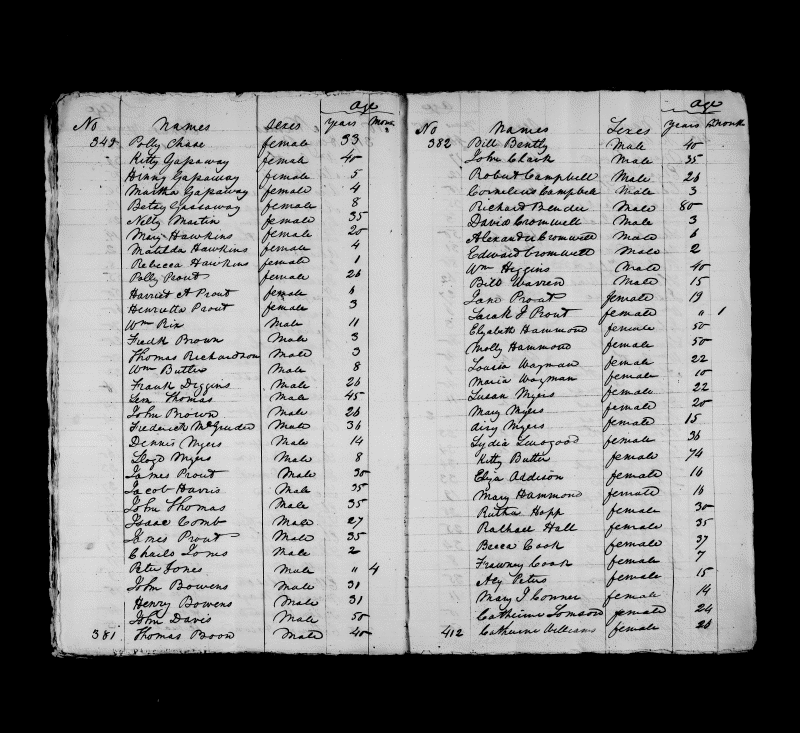 Age
No Names Sexes Years Mon
349 Polly Chase female 33
Kitty Gassaway female 40
Henny Gassaway female 5
Martha Gassaway female 4
Betsy Gassaway female 8
Nelly Martin female 35
Mary Hawkins female 20
Matilda Hawkins female 4
Rebecca Hawkins female 1
Polly Prout female 26
Harriet A Prout female 6
Henrietta Prout female 3
Wm Rix Male 11
Fredk Brown Male 3
Thomas Richardson Male 3
Wm Butler Male 8
Frank Diggins Male 26
Lem Thomas Male 45
John Brown Male 26
Frederick McGruder Male 36
Dennis Myers Male 14
Lloyd Myers Male 8
James Prout Male 30
Jacob Harris Male 35
John Thomas Male 35
Isaac Comb Male 27
James Prout Male 35
Charles Jones Male 2
Peter Jones Male " 4
John Bowens Male 31
Henry Bowens Male 31
John Davis Male 50
381 Thomas Boon Male 40
Age
No Names Sexes Years Month
382 Bill Bently Male 40
John Clark Male 35
Robert Campbell Male 26
Cornelius Campbell Male 3
Richard Bender Male 80
David Cromwell Male 3
Alexander Cromwell Male 6
Edward Cromwell Male 2
Wm Higgins Male 40
Bill Warren Male 15
Jane Prout female 19
Sarah J Prout female " 1
Elizabeth Hammond female 50
Molly Hammond female 50
Louisa Wagman female 22
Maria Wagman female 10
Susan Myers female 22
Mary Myers female 20
Airy Myers female 15
Lydia female 36
Kitty Butler female 74
Eliza Addison female 16
Mary Hammond female 16
Rutha Hopp female 30
Rachael Hall female 35
Becca Cook female 37
Cook female 7
Aley Peters female 15
Mary J Conner female 14
Catherine female 24
412 Catherine Williams female 26